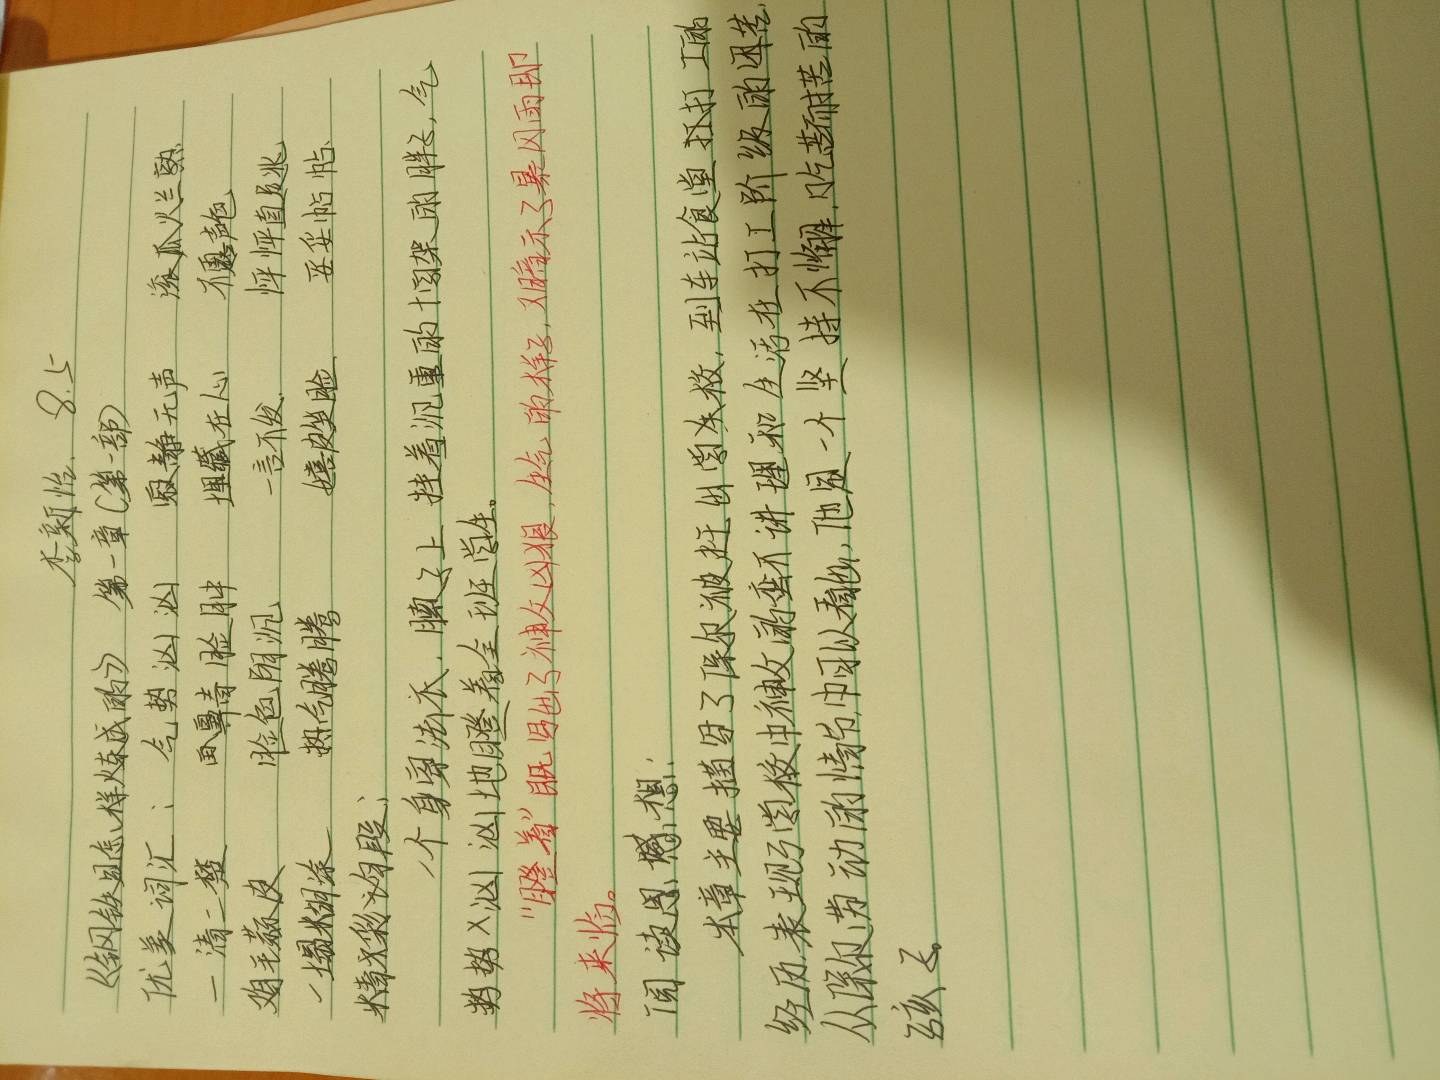 李新怡 8.5
《钢铁是怎样炼成的》 第一章(第一部)
优美词汇: 气势汹汹 寂静无声 滚瓜烂熟
一清二楚 鼻青脸肿 埋藏在心 不露声色
鸡毛蒜皮 脸色阴沉 一言不发 怦怦直跳
一塌糊涂 热气腾腾 嬉皮笑脸 妥妥帖帖
精彩语段:
一个身穿法衣,脖子上挂着沉重的十字架的胖子,气
势汹汹地瞪着全班学生。
“瞪着”既写出了神父凶狠,生气的样子,又暗示了暴风雨即
将来临。
阅读感想:
本章主要描写了保尔被赶出学校,到车站食堂打工的
经历,表现了学校中神父的蛮不讲理和生活在打工阶级的困苦,
从保尔劳动的情节中可以看出,他是一个坚持不懈,吃苦耐劳的
孩子。